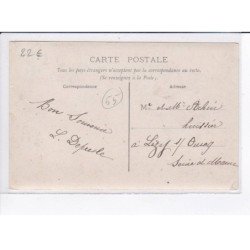 22€
CARTE POSTALE
Tous les pays étrangers n'acceptent pas la correspondance au recto.
(Se renseigner à la Poste).
Correspondance
Adresse
Bon Souvenir
L.
M. et Me
huissier
à Lizy s/ Ourcq
Seine et Marne